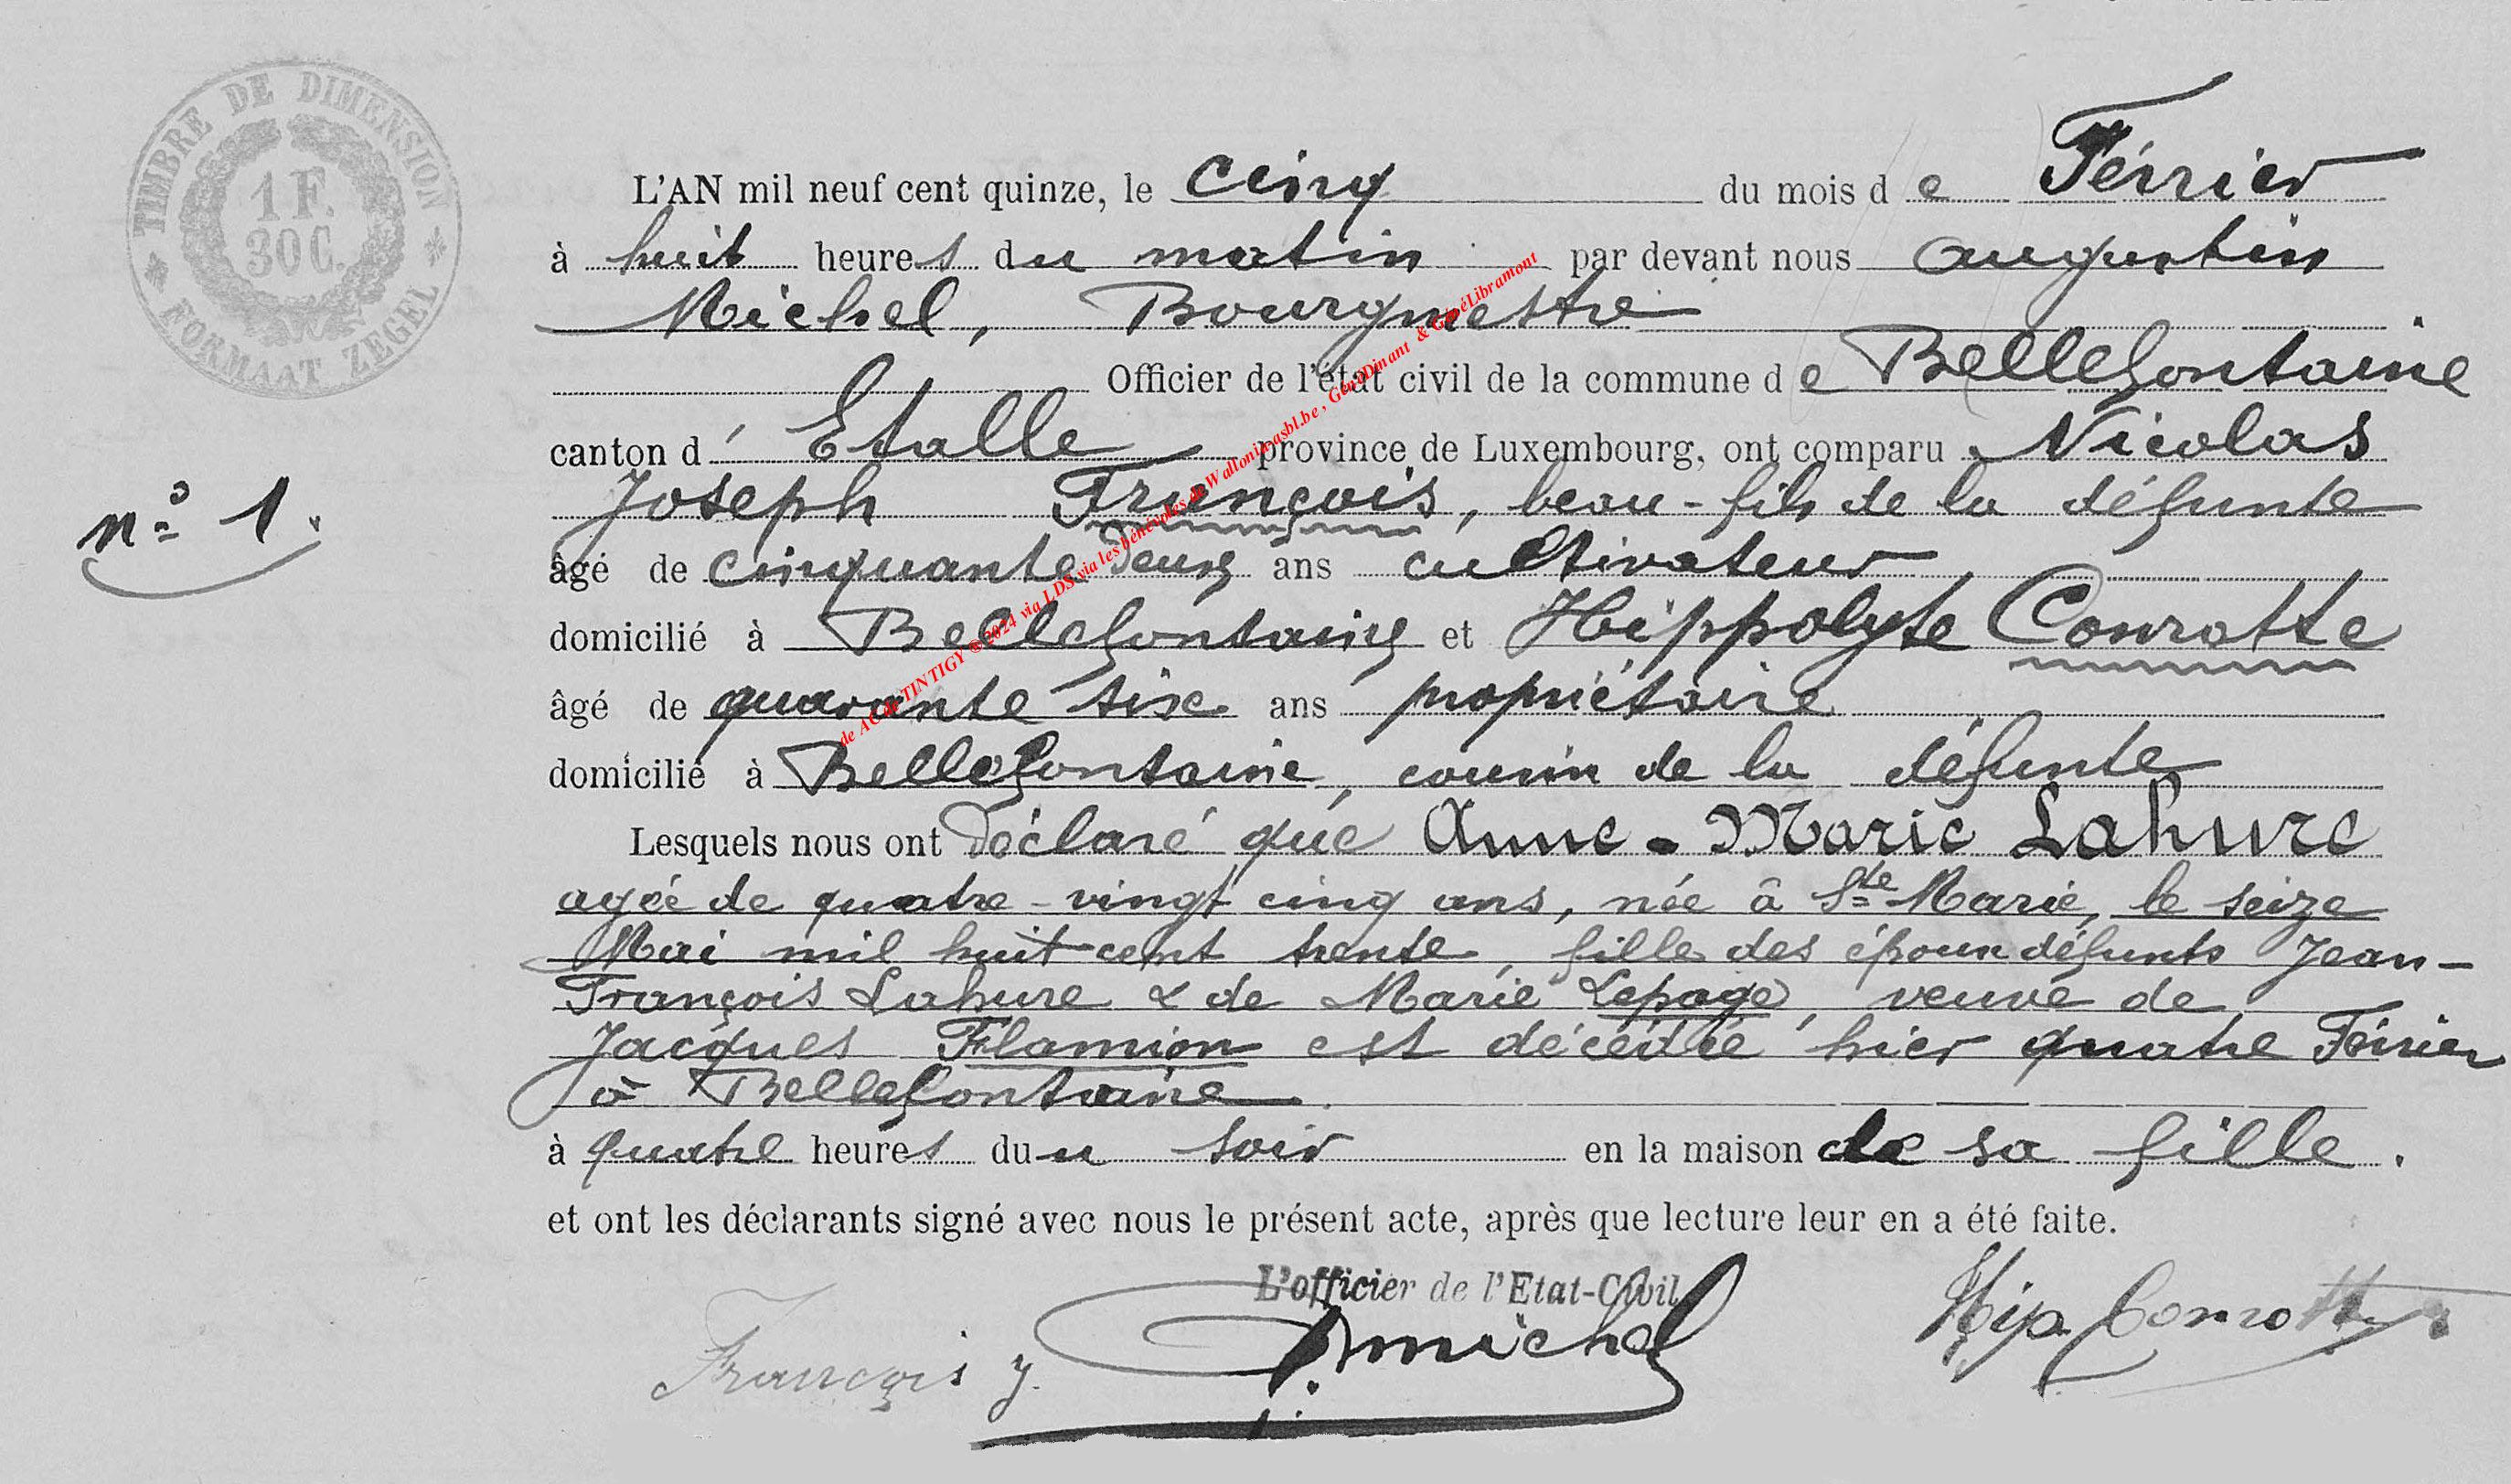 TIMBRE DE DIMENSION
1 F.
30 C.
FORMAAT ZEGEL
L'AN mil neuf cent quinze, le cinq du mois de Février
à huit heures du matin par devant nous Augustin
Michel, Bourgmestre
Officier de l'état civil de la commune de Bellefontaine
canton d' Etalle province de Luxembourg, ont comparu Nicolas
n° 1.
Joseph François, beau-fils de la défunte
âgé de cinquante deux ans cultivateur
domicilié à Bellefontaine et Hippolyte Conrotte
âgé de quarante six ans propriétaire
domicilié à Bellefontaine, cousin de la défunte
Lesquels nous ont déclaré que Anne-Marie Lahure
agée de quatre-vingt cinq ans, née à Ste Marie, le seize
Mai mil huit cent trente, fille des époux défunts Jean-
François Lahure & de Marie Lepage, veuve de
Jacques Flamion est décédée hier quatre Février
à Bellefontaine.
à quatre heures du soir en la maison de sa fille.
et ont les déclarants signé avec nous le présent acte, après que lecture leur en a été faite.
L'officier de l'Etat-Civil
François J. Amichel Hip. Conrotte
de AC de TINTIGY ©2024 via LDS, via les bénévoles de Walloniaasbl.be, GénéDinant & GénéLibramont